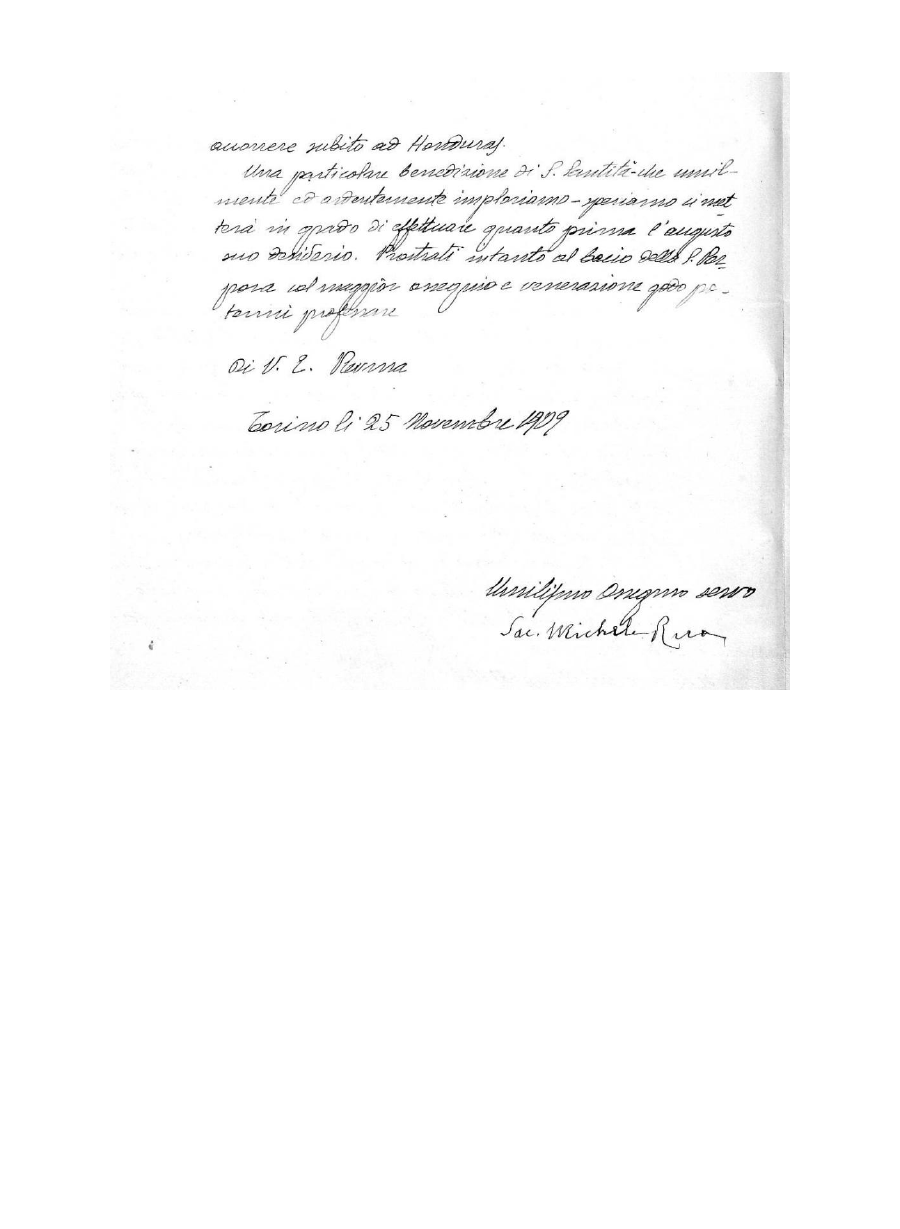 accorrere subito ad Honduras.
Una particolare benedizione di S. Santità - che umil-
mente ed ardentemente imploriamo - speriamo ci met-
terà in grado di effettuare quanto prima l'augusto
suo desiderio. Prostrati intanto al bacio della S. Por-
pora col maggior ossequio e venerazione godo po-
termi professare
di V. E. Revma
Torino li 25 Novembre 1909
Umilissimo Ossequmo servo
Sac. Michele Rua